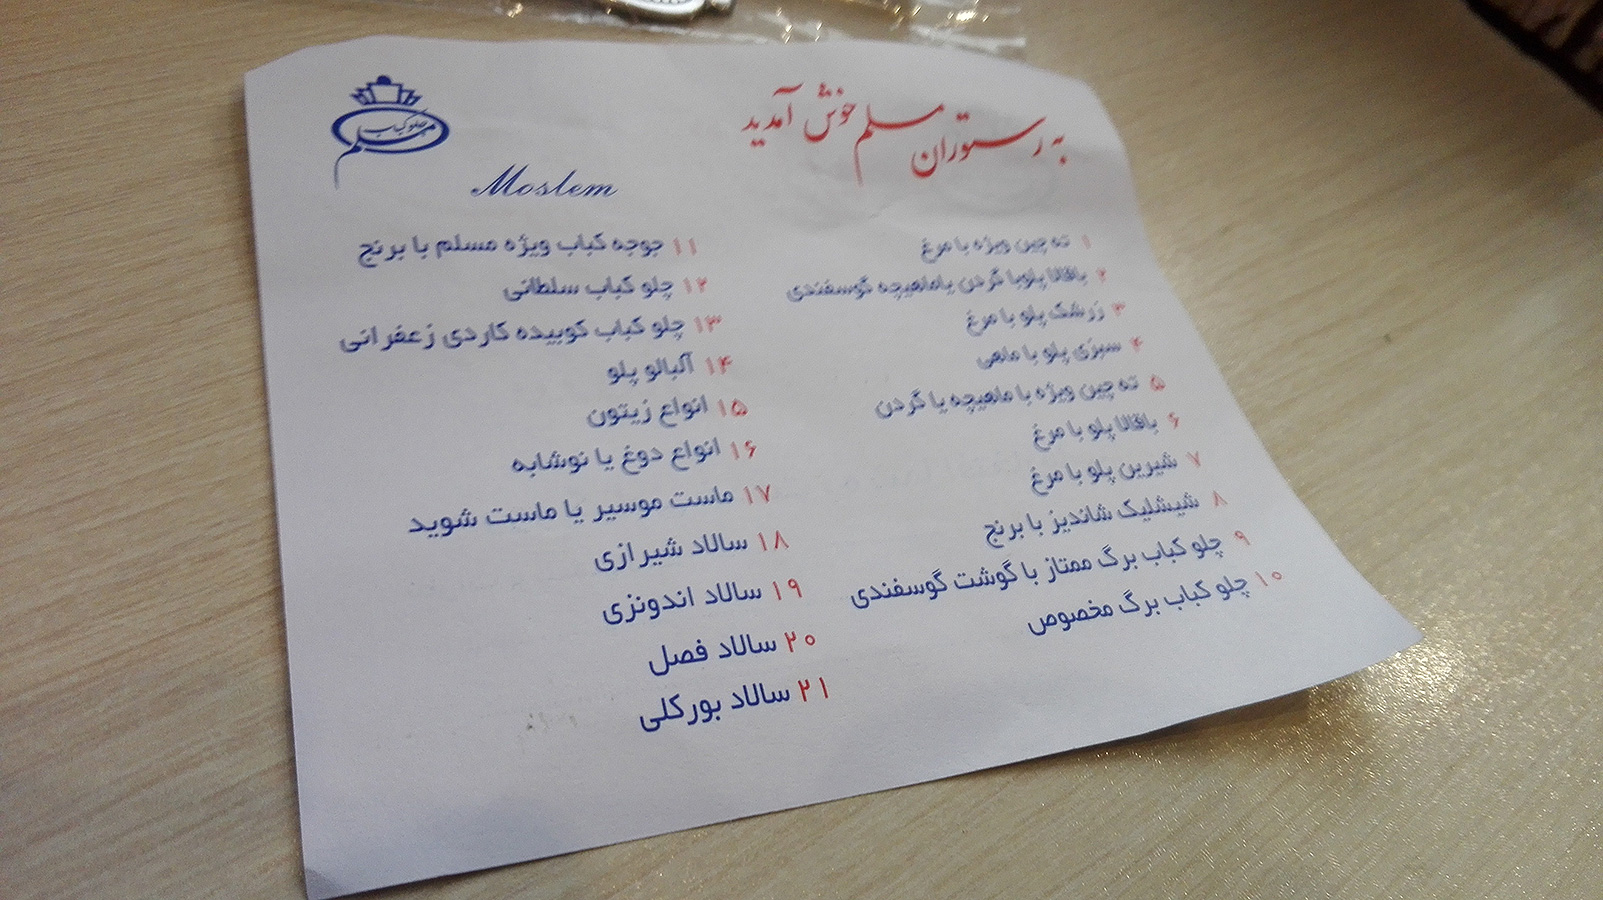 به رستوران مسلم خوش آمدید
چلوکباب
مسلم
Moslem
۱ ته چین ویژه با مرغ
۲ باقالا پلوبا گردن یاماهیچه گوسفندی
۳ زرشک پلو با مرغ
۴ سبزی پلو با ماهی
۵ ته چین ویژه با ماهیچه یا گردن
۶ باقالا پلو با مرغ
۷ شیرین پلو با مرغ
۸ شیشلیک شاندیز با برنج
۹ چلو کباب برگ ممتاز با گوشت گوسفندی
۱۰ چلو کباب برگ مخصوص
۱۱ جوجه کباب ویژه مسلم با برنج
۱۲ چلو کباب سلطانی
۱۳ چلو کباب کوبیده کاردی زعفرانی
۱۴ آلبالو پلو
۱۵ انواع زیتون
۱۶ انواع دوغ یا نوشابه
۱۷ ماست موسیر یا ماست شوید
۱۸ سالاد شیرازی
۱۹ سالاد اندونزی
۲۰ سالاد فصل
۲۱ سالاد بورکلی